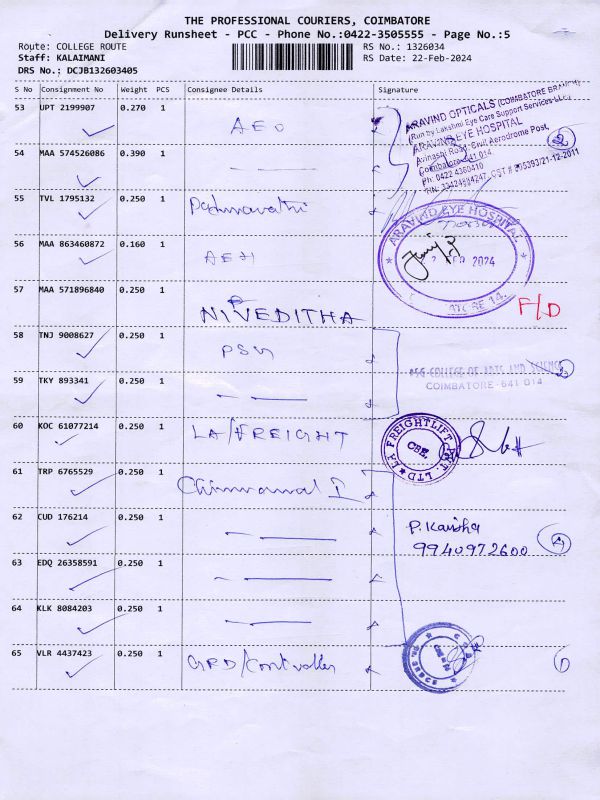 THE PROFESSIONAL COURIERS, COIMBATORE
Delivery Runsheet - PCC - Phone No.:0422-3505555 - Page No.:5
Route: COLLEGE ROUTE RS No.: 1326034
Staff: KALAIMANI RS Date: 22-Feb-2024
DRS No.: DCJB132603405
S No Consignment No Weight PCS Consignee Details Signature
53 UPT 2199907 0.270 1
ARAVIND OPTICALS (COIMBATORE BRANCH)
(Run by Lakshmi Eye Care Support Services LLP)
ARAVIND EYE HOSPITAL
Avinashi Road, Civil Aerodrome Post,
Coimbatore-641 014.
Ph: 0422 4360410
2
54 MAA 574526086 0.390 1
55 TVL 1795132 0.250 1 Padmavathi
ARAVIND EYE HOSPITAL
56 MAA 863460872 0.160 1 AEH
FEB 2024
57 MAA 571896840 0.250 1 NIVEDITHA
F/D
58 TNJ 9008627 0.250 1
PSG COLLEGE OF ARTS AND SCIENCE
COIMBATORE - 641 014
59 TKY 893341 0.250 1
60 KOC 61077214 0.250 1 LA/FREIGHT
LA FREIGHTLIFT PVT. LTD
CBE.
61 TRP 6765529 0.250 1
62 CUD 176214 0.250 1
9940972600
63 EDQ 26358591 0.250 1
64 KLK 8084203 0.250 1
65 VLR 4437423 0.250 1